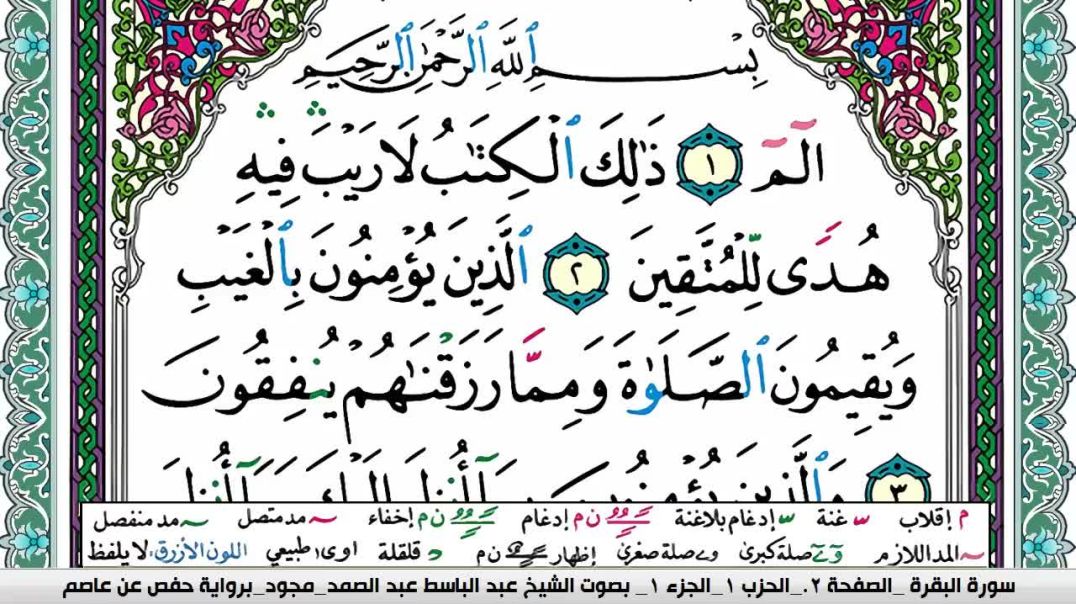 بِسْمِ ٱللَّهِ ٱلرَّحْمَٰنِ ٱلرَّحِيمِ
الٓمٓ ١ ذَٰلِكَ ٱلْكِتَٰبُ لَا رَيْبَ ۛ فِيهِ ۛ
هُدًى لِّلْمُتَّقِينَ ٢ ٱلَّذِينَ يُؤْمِنُونَ بِٱلْغَيْبِ
وَيُقِيمُونَ ٱلصَّلَوٰةَ وَمِمَّا رَزَقْنَٰهُمْ يُنفِقُونَ
٣ وَٱلَّذِينَ يُؤْمِنُونَ بِمَآ أُنزِلَ إِلَيْكَ وَمَآ أُنزِلَ
م إقلاب غنة إدغام بلاغنة ن م إدغام ن م إخفاء مد متصل مد منفصل
المد اللازم صلة كبرى صلة صغرى إظهار ن م قلقلة اوى طبيعي اللون الأزرق: لا يلفظ
سورة البقرة _الصفحة ٢._الحزب ١_الجزء ١_ بصوت الشيخ عبد الباسط عبد الصمد_مجود_برواية حفص عن عاصم